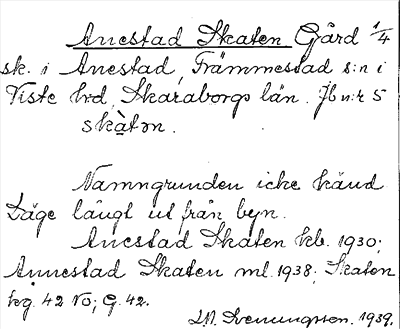 Anestad Skaten Gård 1/4
sk. i Anestad, Främmestad s:n i
Viste hrd, Skaraborgs län. Jb n:r 5
skàtən.
Namngrunden icke känd.
Läge långt ut från byn.
Anestad Skaten kb. 1930;
Annestad Skaten ml. 1938; Skaten
kg. 42 NO; G. 42.
Svenungsson. 1939.